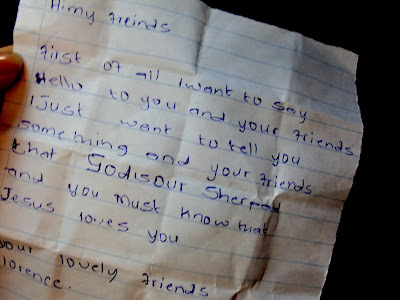 Hi my Freinds
First of all I want to say
Hello to you and your Friends
I Just want to tell you
something and your Friends
that God is our Sherped
and you must know that
Jesus loves you
your lovely Friends
lorence.